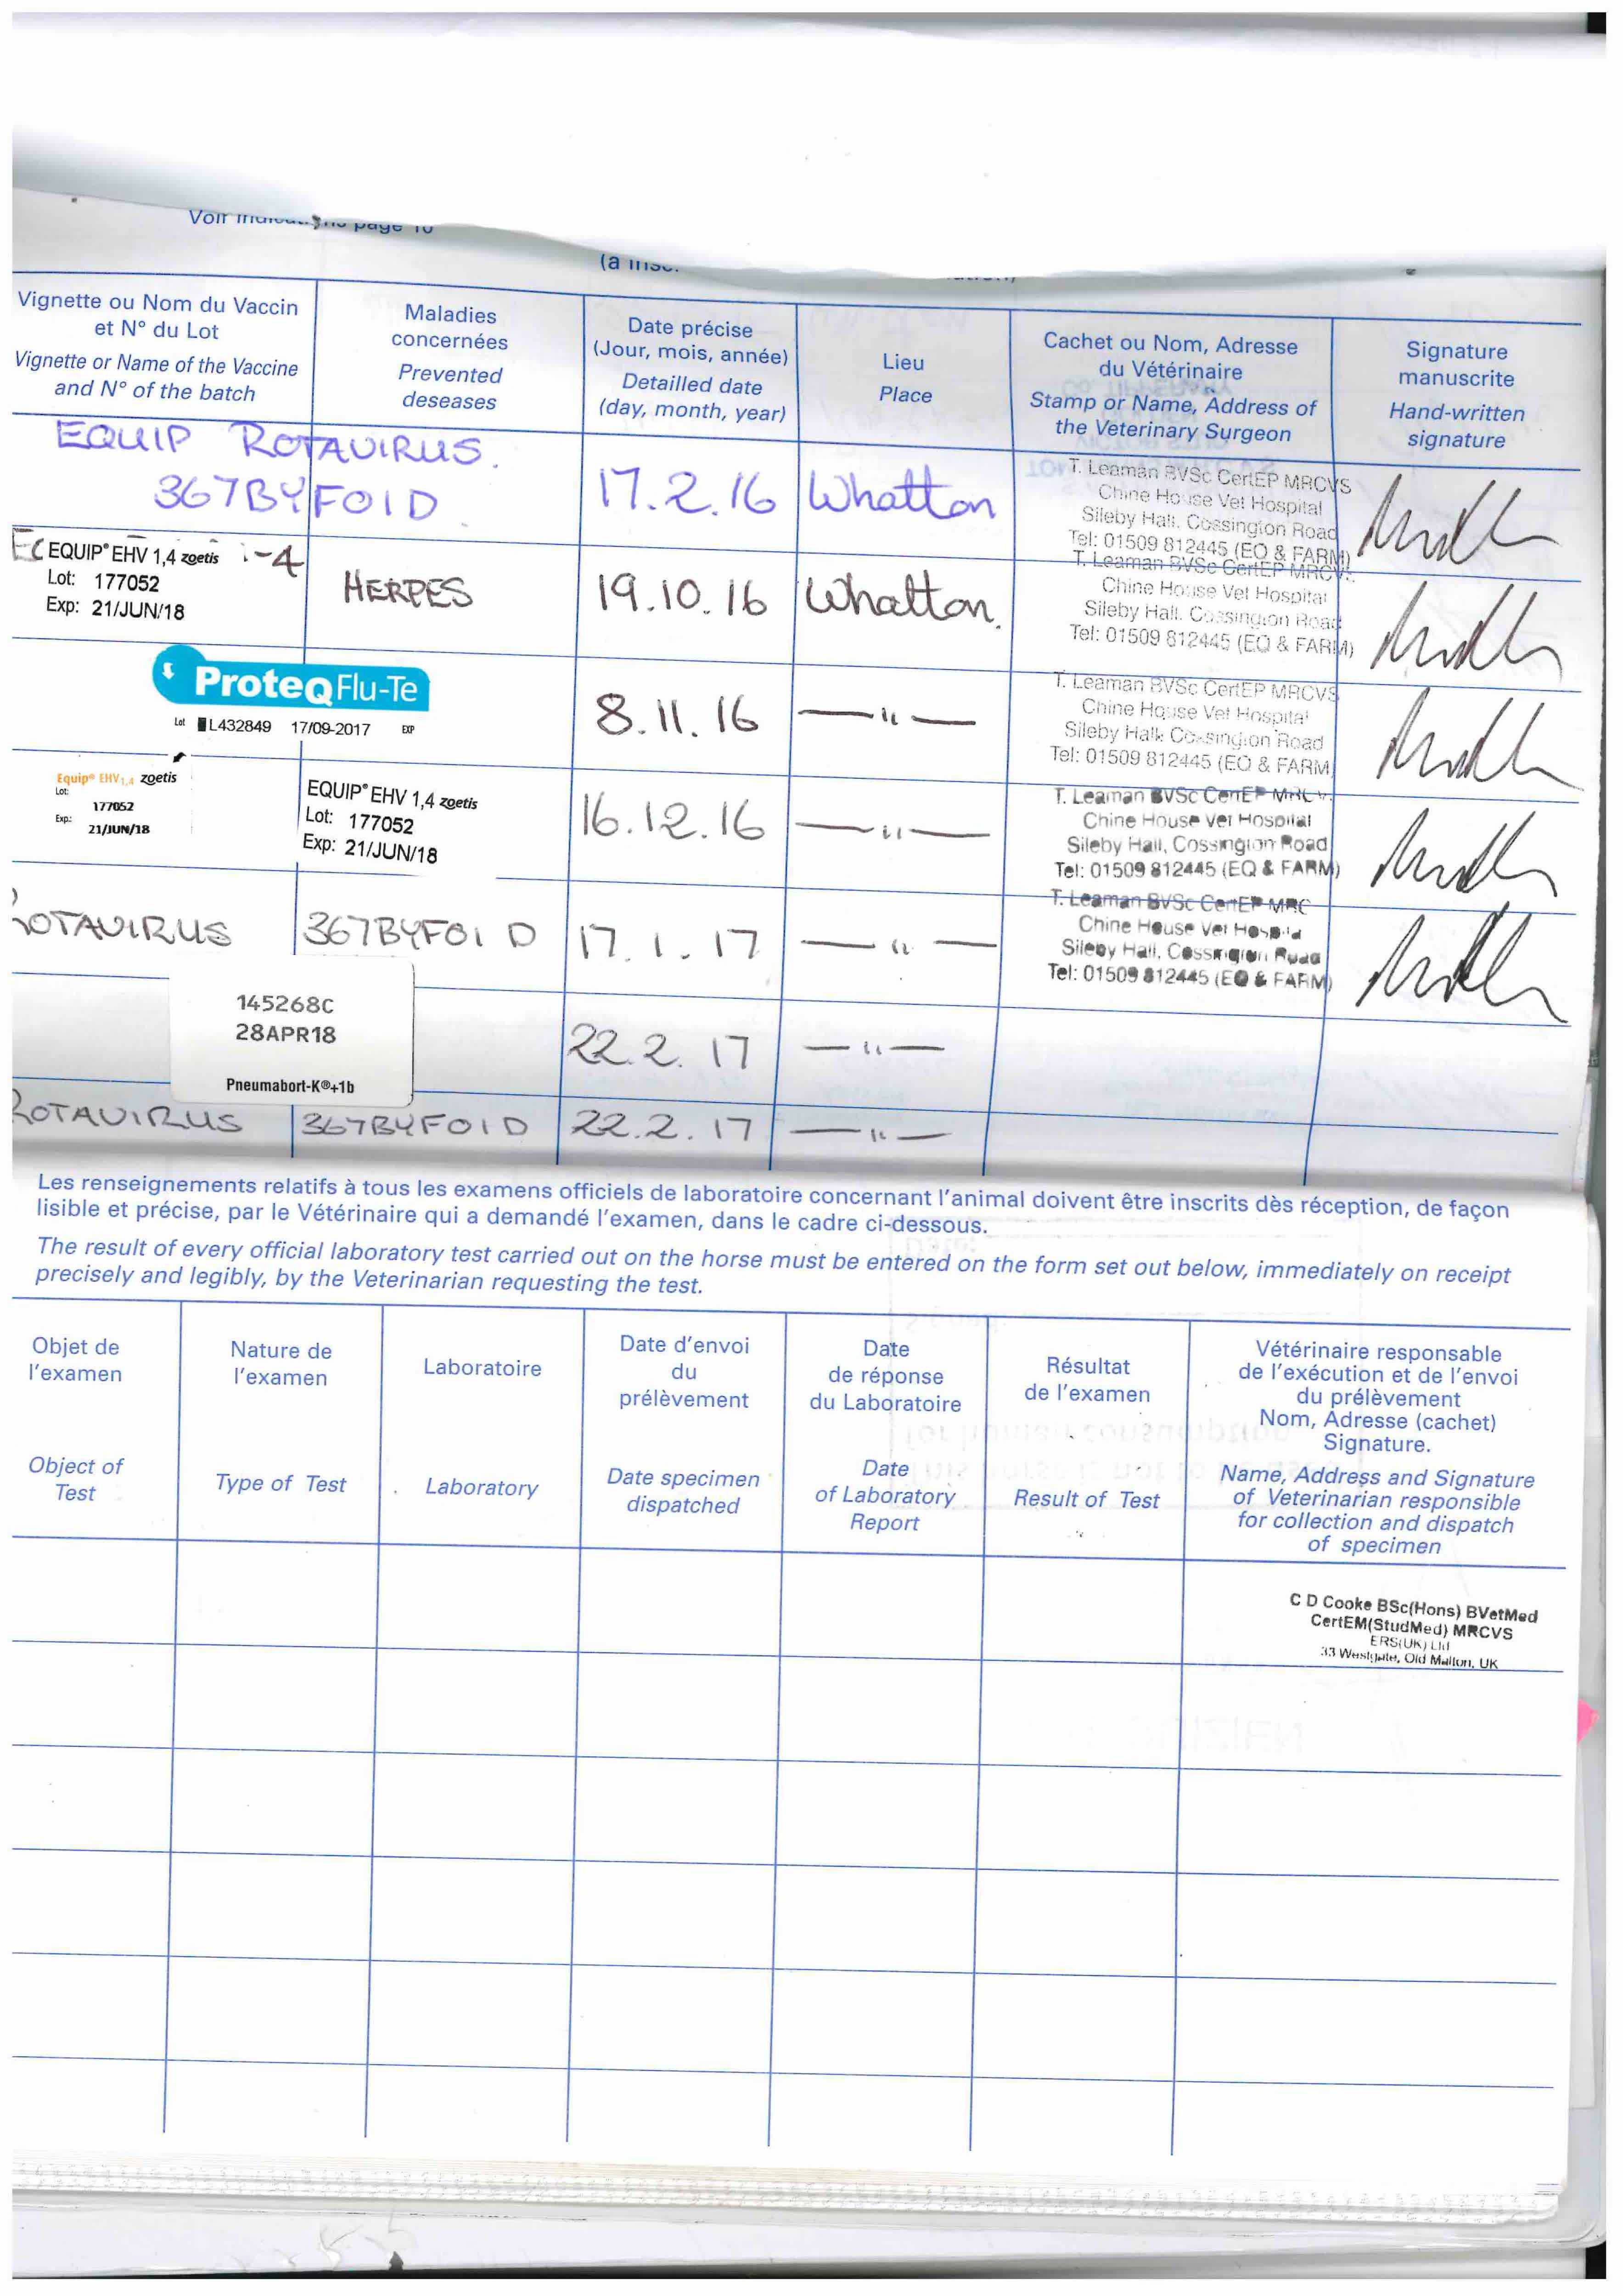 Voir
page 10
(à insc.
Vignette ou Nom du Vaccin
et N° du Lot
Vignette or Name of the Vaccine
and N° of the batch
Maladies
concernées
Prevented
deseases
Date précise
(Jour, mois, année)
Detailled date
(day, month, year)
Lieu
Place
Cachet ou Nom, Adresse
du Vétérinaire
Stamp or Name, Address of
the Veterinary Surgeon
Signature
manuscrite
Hand-written
signature
EQUIP ROTAVIRUS.
367BYFOID
17.2.16
Whatton
T. Leaman BVSc CertEP MRCVS
Chine House Vet Hospital
Sileby Hall, Cossington Road
Tel: 01509 812445 (EQ & FARM)
EQUIP® EHV 1,4 zoetis
-4
Lot: 177052
Exp: 21/JUN/18
HERPES
19.10.16
Whatton.
T. Leaman BVSc CertEP MRCVS
Chine House Vet Hospital
Sileby Hall, Cossington Road
Tel: 01509 812445 (EQ & FARM)
ProteqFlu-Te
Lot L432849 17/09-2017 EXP
8.11.16
— " —
T. Leaman BVSc CertEP MRCVS
Chine House Vet Hospital
Sileby Hall, Cossington Road
Tel: 01509 812445 (EQ & FARM
Equip® EHV1,4 zoetis
Lot:
177052
Exp:
21/JUN/18
EQUIP® EHV 1,4 zoetis
Lot: 177052
Exp: 21/JUN/18
16.12.16
— " —
T. Leaman BVSc CertEP MRCV
Chine House Vet Hospital
Sileby Hall, Cossington Road
Tel: 01509 812445 (EQ & FARM)
ROTAVIRUS
367BYFOI D
17.1.17
— " —
T. Leaman BVSc CertEP MRC
Chine House Vet Hospital
Sileby Hall, Cossington Road
Tel: 01509 812445 (EQ & FARM)
145268C
28APR18
Pneumabort-K®+1b
22.2.17
— " —
ROTAVIRUS
367BYFOID
22.2.17
— " —
Les renseignements relatifs à tous les examens officiels de laboratoire concernant l'animal doivent être inscrits dès réception, de façon
lisible et précise, par le Vétérinaire qui a demandé l'examen, dans le cadre ci-dessous.
The result of every official laboratory test carried out on the horse must be entered on the form set out below, immediately on receipt
precisely and legibly, by the Veterinarian requesting the test.
Objet de
l'examen
Object of
Test
Nature de
l'examen
Type of Test
Laboratoire
Laboratory
Date d'envoi
du
prélèvement
Date specimen
dispatched
Date
de réponse
du Laboratoire
Date
of Laboratory
Report
Résultat
de l'examen
Result of Test
Vétérinaire responsable
de l'exécution et de l'envoi
du prélèvement
Nom, Adresse (cachet)
Signature.
Name, Address and Signature
of Veterinarian responsible
for collection and dispatch
of specimen
C D Cooke BSc(Hons) BVetMed
CertEM(StudMed) MRCVS
ERS(UK) Ltd
33 Westgate, Old Malton, UK